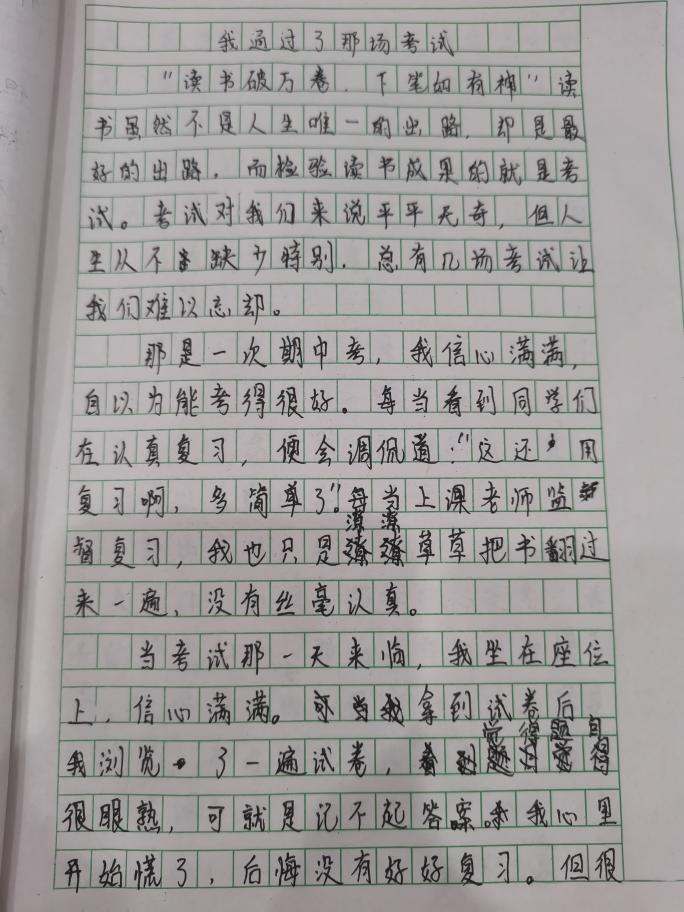 我通过了那场考试
"读书破万卷，下笔如有神"读
书虽然不是人生唯一的出路，却是最
好的出路，而检验读书成果的就是考
试。考试对我们来说平平无奇，但人
生从不缺少特别，总有几场考试让
我们难以忘却。
那是一次期中考，我信心满满，
自以为能考得很好。每当看到同学们
在认真复习，便会调侃道："这还用
复习啊，多简单了"。每当上课老师监
督复习，我也只是潦潦草草把书翻过
来一遍，没有丝毫认真。
当考试那一天来临，我坐在座位
上，信心满满。当我拿到试卷后
我浏览了一遍试卷，觉得题目
很眼熟，可就是记不起答案。我心里
开始慌了，后悔没有好好复习。但很